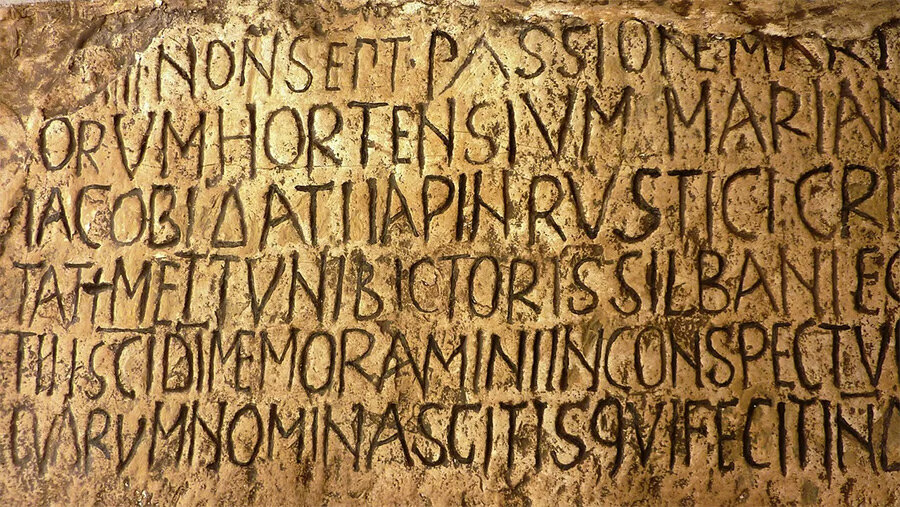 IIII NONSEPT · PASSIONE MART
ORVMHORTENSIVM MARIAN
IACOBI DATI IAPINRVSTICI CRI
TAT+METTVNIBICTORISSILBANIEG
TIISCIDIMEMORAMINIINCONSPECTV
QVARVMNOMINASCITISQVIFECITIN